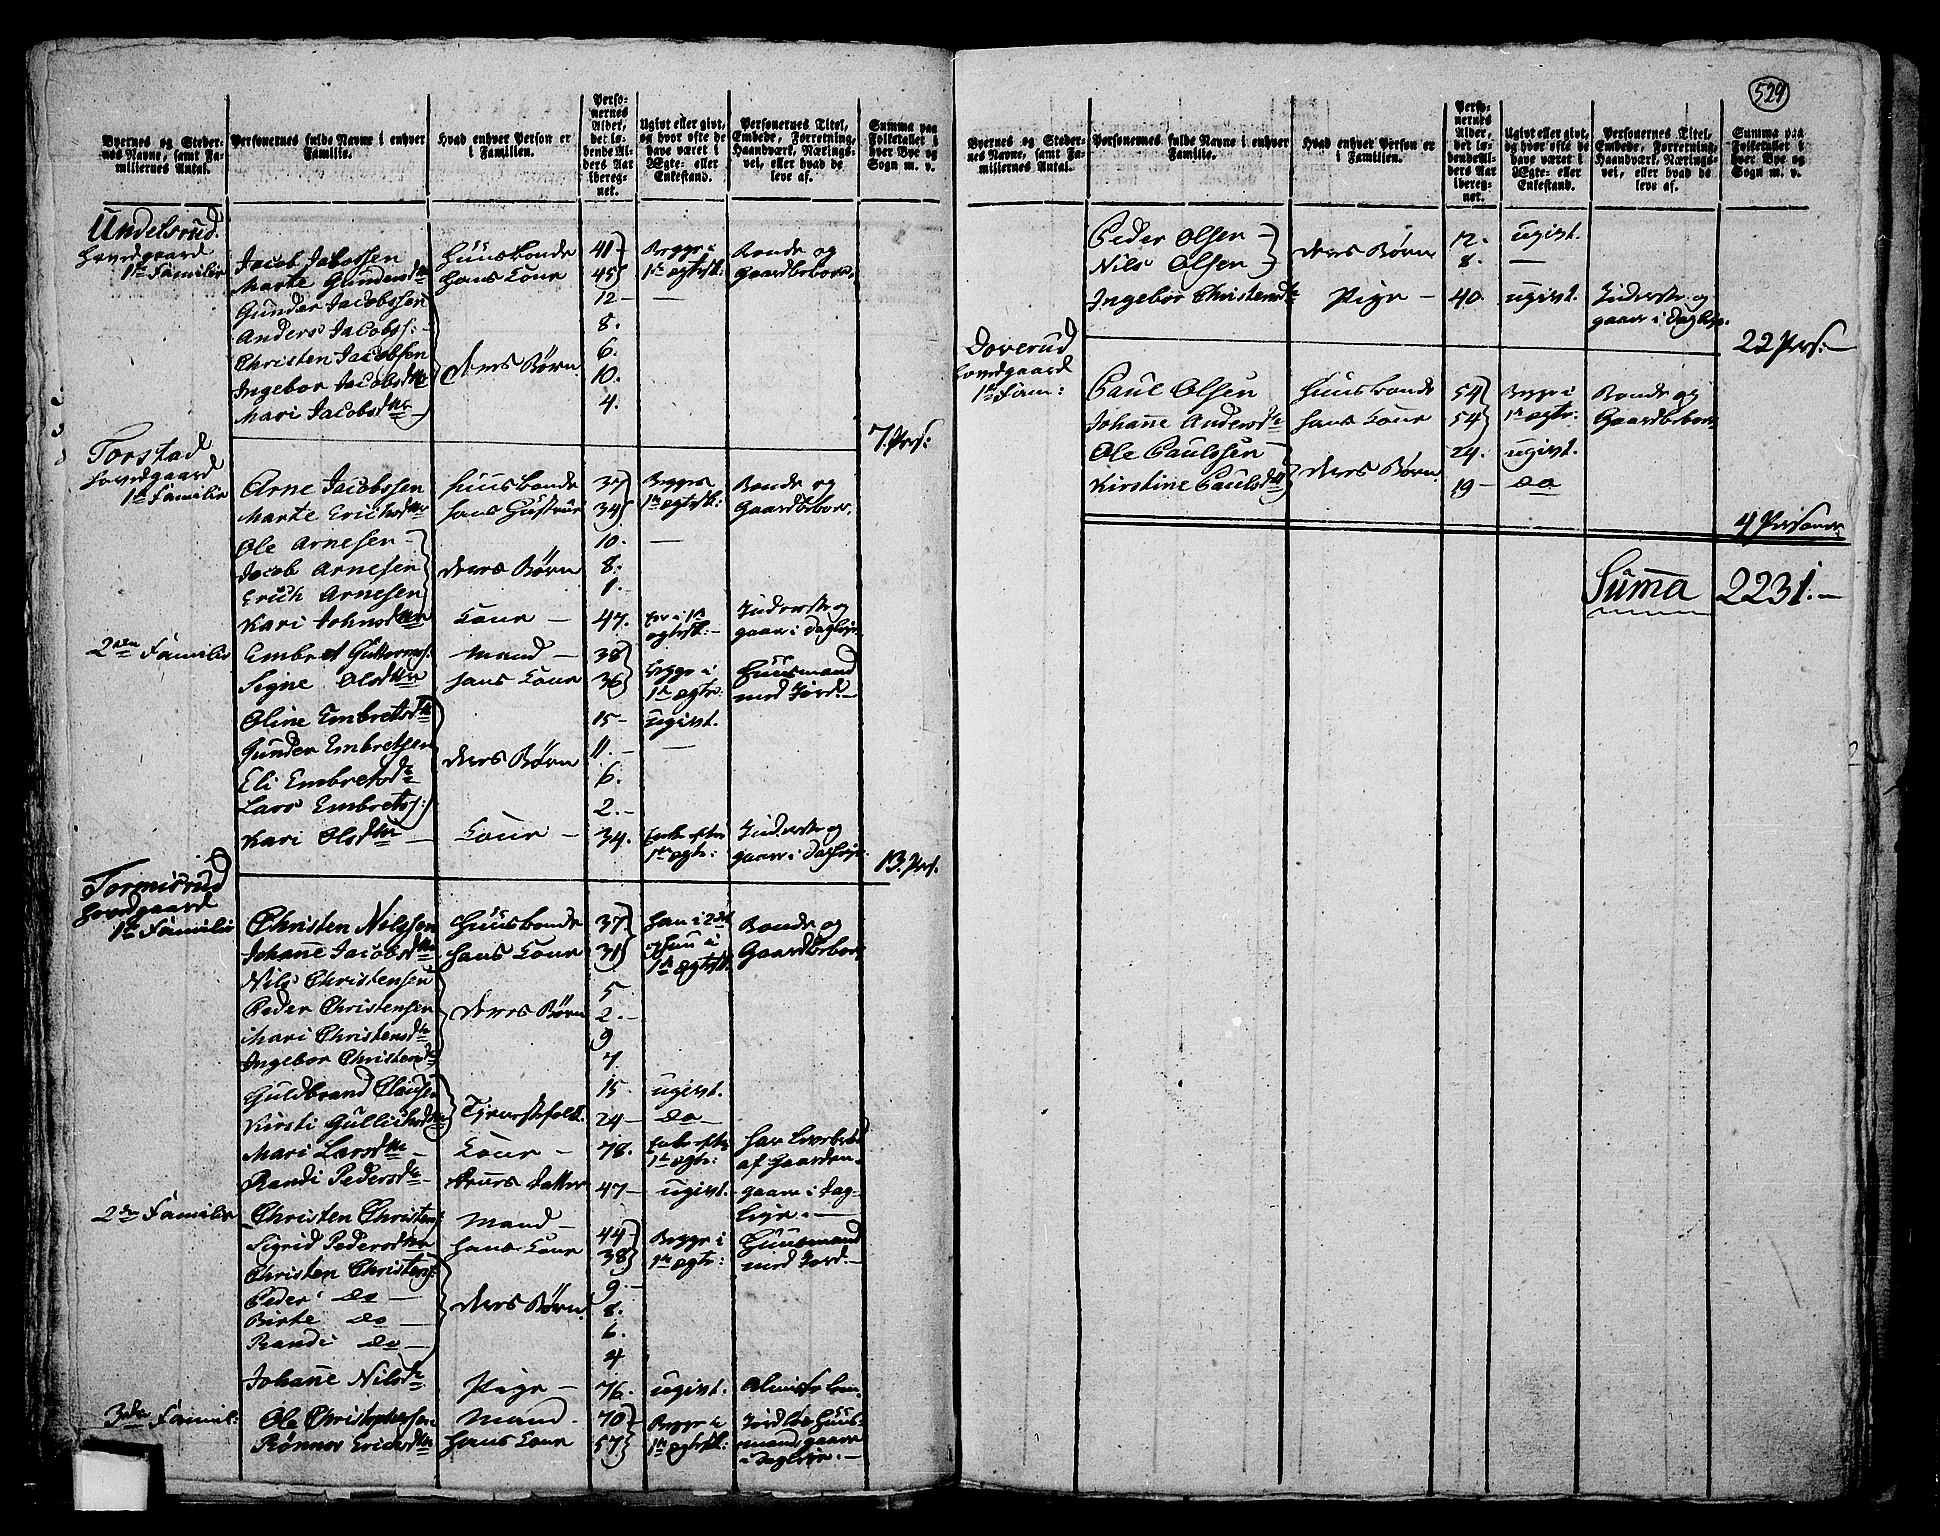 529
Byernes og Stedernes Navne, samt Familliernes Antal. | Personernes fulde Navne i enhver Familie. | Hvad enhver Person er i Familien. | Personernes Alder, det løbende Alders Aar iberegnet. | Ugivt eller givt, og hvor ofte de have været i Ægte- eller Enkestand. | Personernes Titel, Embede, Forretning, Haandværk, Næringsvei, eller hvad de leve af. | Summa paa Folketallet i hver Bye og Sogn m. v.
Undelsrud.
Hovedgaard
1te Familie
Jacob Jacobsen | Huusbonde | 41 | Begge i | Bonde og
Marte Gundersdtr | Hans Kone | 45 | 1te ægtesk: | Gaardbeboer.
Gunder Jacobssen | 12 –
Anders Jacobss: | 8.
Christen Jacobsen | deres Børn | 6.
Ingebor Jacobsdtr | 10.
Mari Jacobsdtr | 4.
7. Pers:
Torstad
Hovedgaard
1te Familie
Arne Jacobssen | Huusbonde | 37 | Begge | Bonde og
Marte Erichsdtr | Hans Hustrue | 34 | 1te ægtesk: | Gaardbeboer.
Ole Arnesen – | 10. | —
Jacob Arnesen | deres Børn | 8.
Erich Arnesen | 1.
Kari Johnsdtr | Kone – | 47. | Er i 1te ægtesk: – | Inderste og gaaer i Dagleje
2den Familie
Embret Guttorms: | Mand – | 38 | Begge i | Huusmand
Signe Olsdtr | Hans Kone | 36 | 1te ægte: | med Jord. –
Oline Embretsdtr | 15 – | ugivt.
Gunder Embretsen | deres Børn | 11. – | —
Eli Embretsdtr | 6.
Lars Embretss: | 2. –
Kari Olsdtr – | Kone – | 34. | Enke efter 1te ægte: | Inderste og gaaer i Dagleje
13. Pers.
Tormisrud
Hovedgaard
1te Familie
Christen Nilssen | Huusbonde | 37. | Han i 2det | Bonde og
Johane Jacobsdtr | Hans Kone | 31 | og hun i 1te ægtesk. | Gaardbeboer
Nils Christensen | 5
Peder Christensen | deres Børn | 2. –
Mari Christensdtr | 9
Ingebor Christensdtr | 7.
Guldbrand Clausen | Tjenestefolk | 15 | ugivt.
Kirsti Gullichsdtr | 24 – | do –
Mari Larsdtr – | Kone – | 78. | Enke efter 1te ægte: | har Levebrød af Gaarden.
Randi Pedersdtr – | Hendes Datter | 47 – | ugivt. | gaaer i Dagleje. –
2den Familie
Christen Christens: | Mand – | 44 | Begge i | Huusmand
Sigrid Pedersdtr | Hans Kone | 38 | 1te ægte: | med Jord. –
Christen Christens: | 9. –
Peder do – | deres Børn | 8.
Birte do – | 6.
Randi do – | 4
Johane Nilsdtr | Pige – | 76. | ugivt. | Almisse Lem.
3die Famil:
Ole Christophersen | Mand – | 70 | Begge i | Jordløs Huus-
Rønnov Erichsdtr | Hans Kone | 57 | 1te ægtesk: | mand gaaer i Dagleje. –
Byernes og Stedernes Navne, samt Familliernes Antal. | Personernes fulde Navne i enhver Familie. | Hvad enhver Person er i Familien. | Personernes Alder, det løbende Alders Aar iberegnet. | Ugivt eller givt, og hvor ofte de have været i Ægte- eller Enkestand. | Personernes Titel, Embede, Forretning, Haandværk, Næringsvei, eller hvad de leve af. | Summa paa Folketallet i hver Bye og Sogn m. v.
Peder Olsen – | deres Børn | 12. | ugivt.
Nils Olsen | 8. | —
Ingebor Christensdtr | Pige – | 40. | ugivt. | Inderste og gaaer i Dagleje.
22 Pers: –
Doverud
Hovedgaard
1te Fam:
Paul Olsen | Huusbonde | 54 | Begge i | Bonde og
Johane Andersdtr | Hans Kone | 54 | 1te ægte: | Gaardbeboer.
Ole Paulssen | deres Børn | 24. | ugivt.
Kirstine Paulsdtr | 19 – | do
4 Personer
Summa 2231. –